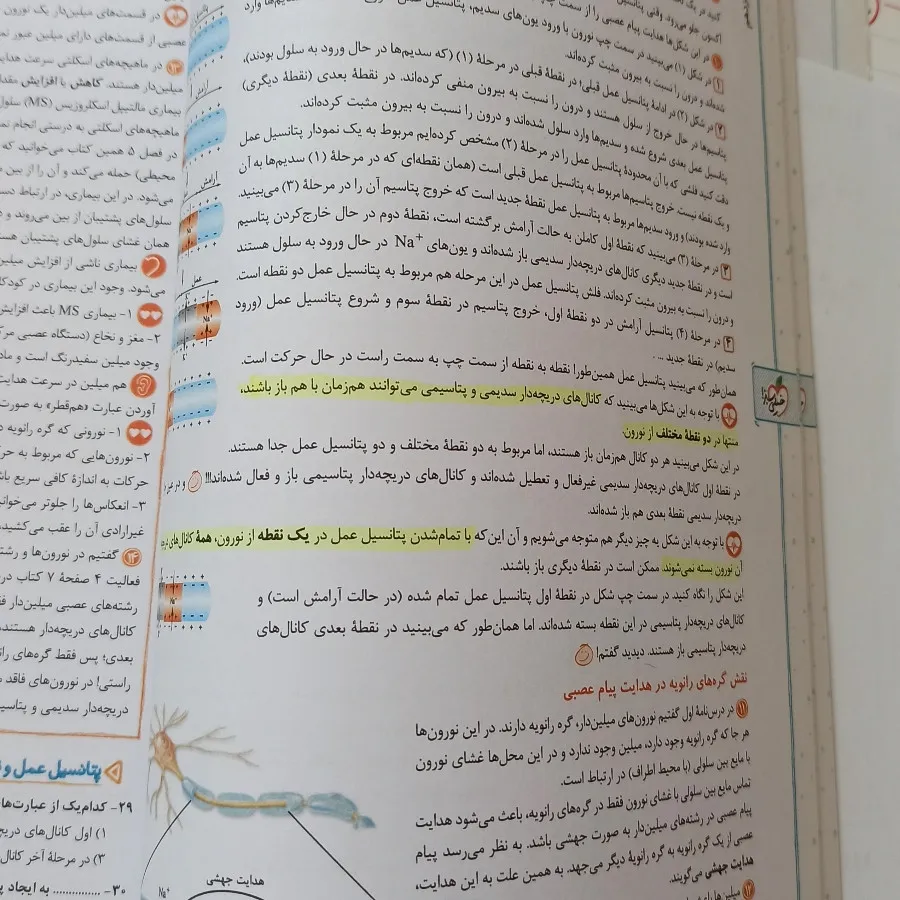 اکنون جلو می‌رود. وقتی پتانسیل
در این شکل‌ها هدایت پیام عصبی را از سمت چپ
۱ در شکل (۱) می‌بینید در سمت چپ نورون با ورود یون‌های سدیم، پتانسیل عمل
شده‌اند و درون را نسبت به بیرون مثبت کرده‌اند.
۲ در شکل (۲) در ادامهٔ پتانسیل عمل قبلی؛ در نقطهٔ قبلی در مرحلهٔ (۱) (که سدیم‌ها در حال ورود به سلول بودند)،
پتاسیم‌ها در حال خروج از سلول هستند و درون را نسبت به بیرون منفی کرده‌اند. در نقطهٔ بعدی (نقطهٔ دیگری)
پتانسیل عمل بعدی شروع شده و سدیم‌ها وارد سلول شده‌اند و درون را نسبت به بیرون مثبت کرده‌اند.
دقت کنید فلشی که با آن محدودهٔ پتانسیل عمل را در مرحلهٔ (۲) مشخص کرده‌ایم مربوط به یک نمودار پتانسیل عمل
و یک نقطه نیست. خروج پتاسیم‌ها مربوط به پتانسیل عمل قبلی است (همان نقطه‌ای که در مرحلهٔ (۱) سدیم‌ها به آن
وارد شده بودند) و ورود سدیم‌ها مربوط به پتانسیل عمل نقطهٔ جدید است که خروج پتاسیم آن را در مرحلهٔ (۳) می‌بینید.
۳ در مرحلهٔ (۳) می‌بینید که نقطهٔ اول کاملن به حالت آرامش برگشته است، نقطهٔ دوم در حال خارج‌کردن پتاسیم
است و در نقطهٔ جدید دیگری کانال‌های دریچه‌دار سدیمی باز شده‌اند و یون‌های Na⁺ در حال ورود به سلول هستند
و درون را نسبت به بیرون مثبت کرده‌اند. فلش پتانسیل عمل در این مرحله هم مربوط به پتانسیل عمل دو نقطه است.
۴ در مرحلهٔ (۴) پتانسیل آرامش در دو نقطهٔ اول، خروج پتاسیم در نقطهٔ سوم و شروع پتانسیل عمل (ورود
سدیم) در نقطهٔ جدید ... .
همان‌طور که می‌بینید پتانسیل عمل همین‌طور! نقطه به نقطه از سمت چپ به سمت راست در حال حرکت است.
با توجه به این شکل‌ها می‌بینید که کانال‌های دریچه‌دار سدیمی و پتاسیمی می‌توانند هم‌زمان با هم باز باشند،
منتها در دو نقطهٔ مختلف از نورون.
در این شکل می‌بینید هر دو کانال هم‌زمان باز هستند، اما مربوط به دو نقطهٔ مختلف و دو پتانسیل عمل جدا هستند.
در نقطهٔ اول کانال‌های دریچه‌دار سدیمی غیرفعال و تعطیل شده‌اند و کانال‌های دریچه‌دار پتاسیمی باز و فعال شده‌اند!!!
دریچه‌دار سدیمی نقطهٔ بعدی هم باز شده‌اند.
با توجه به این شکل یه چیز دیگر هم متوجه می‌شویم و آن این‌که با تمام‌شدن پتانسیل عمل در یک نقطه از نورون، همهٔ کانال‌های
آن نورون بسته نمی‌شوند. ممکن است در نقطهٔ دیگری باز باشند.
این شکل را نگاه کنید. در سمت چپ شکل در نقطهٔ اول پتانسیل عمل تمام شده (در حالت آرامش است) و
کانال‌های دریچه‌دار پتاسیمی در این نقطه بسته شده‌اند. اما همان‌طور که می‌بینید در نقطهٔ بعدی کانال‌های
دریچه‌دار پتاسیمی باز هستند. دیدید گفتم!
نقش گره‌های رانویه در هدایت پیام عصبی
۱۱ در درس‌نامهٔ اول گفتیم نورون‌های میلین‌دار، گره رانویه دارند. در این نورون‌ها
هر جا که گره رانویه وجود دارد، میلین وجود ندارد و در این محل‌ها غشای نورون
با مایع بین سلولی (با محیط اطراف) در ارتباط است.
تماس مایع بین سلولی با غشای نورون فقط در گره‌های رانویه، باعث می‌شود هدایت
پیام عصبی در رشته‌های میلین‌دار به صورت جهشی باشد. به نظر می‌رسد پیام
عصبی از یک گره رانویه به گره رانویهٔ دیگر می‌جهد. به همین علت به این هدایت،
هدایت جهشی می‌گویند.
هدایت جهشی
Na⁺
آرامش
عمل
در قسمت‌های میلین‌دار یک نورون
عصبی از قسمت‌های دارای میلین عبور
۱۳ در ماهیچه‌های اسکلتی سرعت هدایت
میلین‌دار هستند. کاهش یا افزایش
بیماری مالتیپل اسکلروزیس (MS) سلول
ماهیچه‌های اسکلتی به درستی انجام
در فصل ۵ همین کتاب می‌خوانید که
محیطی) حمله می‌کند و آن را از بین
می‌شود. در این بیماری، در ارتباط
سلول‌های پشتیبان از بین می‌روند و
همان غشای سلول‌های پشتیبان
بیماری ناشی از افزایش میلین
می‌شود. وجود این بیماری در
۱- بیماری MS باعث افزایش
۲- مغز و نخاع (دستگاه عصبی
وجود میلین سفیدرنگ است و
هم میلین در سرعت هدایت
آوردن عبارت «هم‌قطر» به صورت
۱- نورونی که گره رانویه
۲- نورون‌هایی که مربوط به
حرکات به اندازهٔ کافی سریع
۳- انعکاس‌ها را جلوتر
غیرارادی آن را عقب می‌کشید
۱۴ گفتیم در نورون‌ها و
فعالیت ۴ صفحهٔ ۷ کتاب
رشته‌های عصبی میلین‌دار
کانال‌های دریچه‌دار هستند
بعدی؛ پس فقط گره‌های
راستی! در نورون‌های فاقد
دریچه‌دار سدیمی و
پتانسیل عمل و
۲۹- کدام‌یک از عبارت‌های
۱) اول کانال‌های
۳) در مرحلهٔ آخر کانال
۳۰- .............. به ایجاد